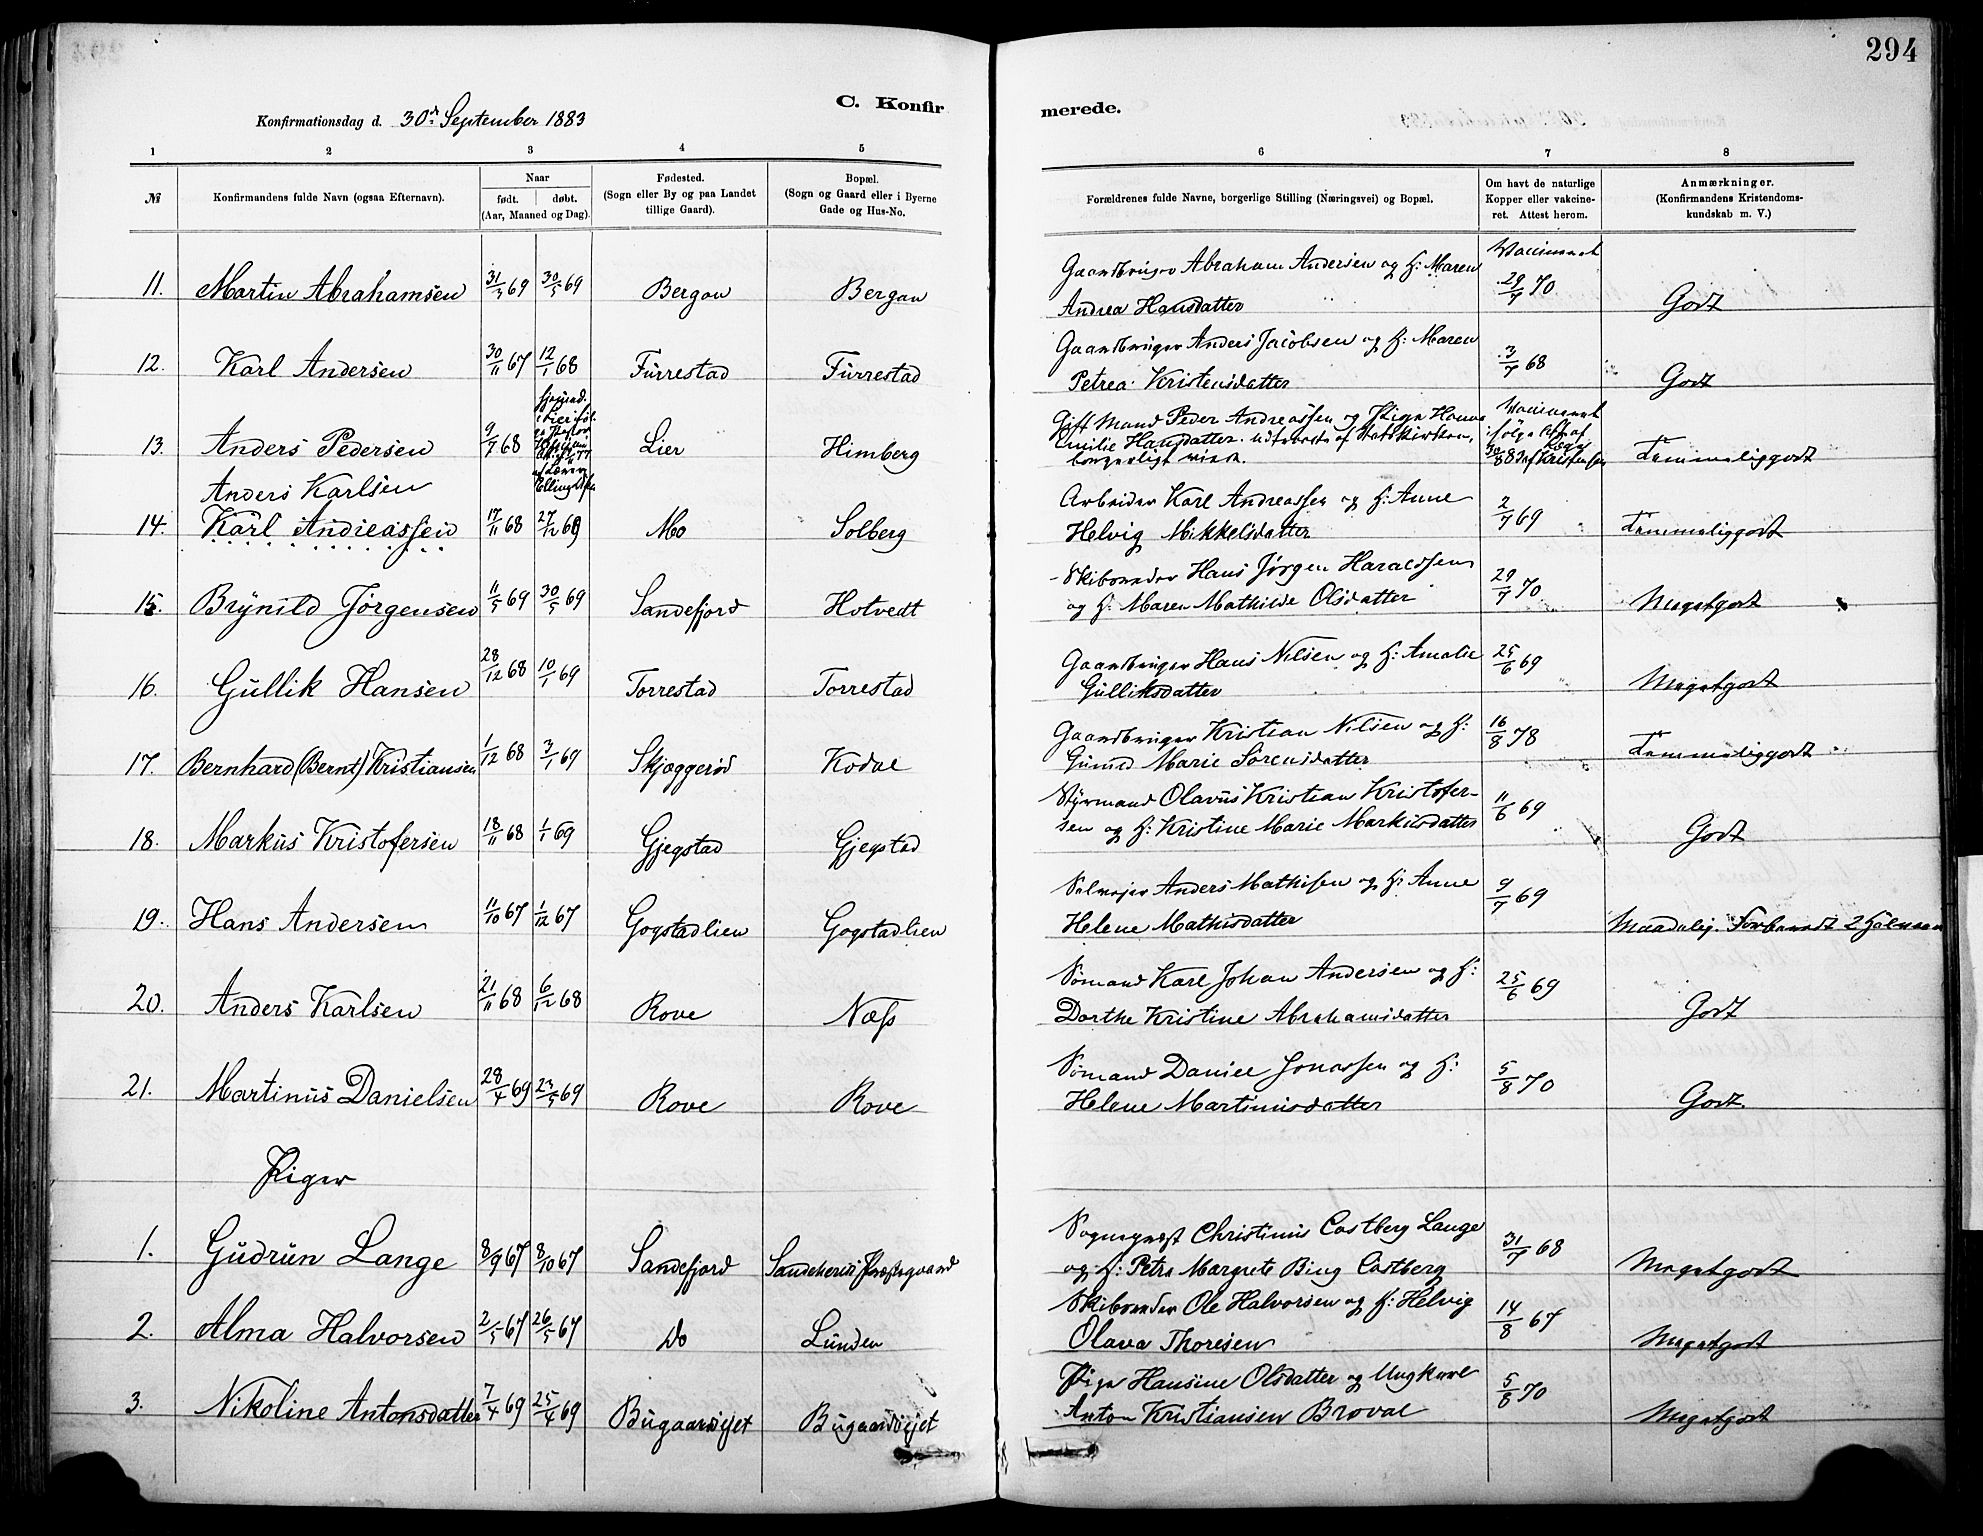 294
C. Konfirmerede.
Konfirmationsdag d. 30te September 1883
1 2 3 4 5 6 7 8
№
Konfirmandens fulde Navn (ogsaa Efternavn).
Naar
født. døbt.
(Aar, Maaned og Dag).
Fødested.
(Sogn eller By og paa Landet
tillige Gaard).
Bopæl.
(Sogn og Gaard eller i Byerne
Gade og Hus-No.
Forældrenes fulde Navne, borgerlige Stilling (Næringsvei) og Bopæl.
Om havt de naturlige
Kopper eller vakcine-
ret. Attest herom.
Anmærkninger.
(Konfirmandens Kristendoms-
kundskab m. V.)
11. Martin Abrahamsen 31/3 69 30/5 69 Bergan Bergan
Gaardbruger Abraham Andersen og H: Maren
Andrea Hansdatter
Vaccineret
29/7 70 Godt
12. Karl Andersen 30/11 67 12/1 68 Furrestad Furrestad
Gaardbruger Anders Jacobsen og H: Maren
Petrea Kristensdatter
3/7 68 Godt
13. Anders Pedersen 9/7 68 Lier Himberg
Gift Mand Peder Andreassen og Pige Hanna
Emilie Hansdatter. udtraadt af Statskirken,
borgerligt viede.
Vaccineret
ifølge Att. af
30/8 83 Kristensen
Temmeliggodt
Anders Karlsen
14. Karl Andreassen 17/11 68 27/12 68 Mo Solberg
Arbeider Karl Andreassen og H: Anne
Helvig Mikkelsdatter
2/7 69 Temmeliggodt
15. Brynild Jørgensen 11/5 69 30/5 69 Sandefjord Hotvedt
Skibsreder Hans Jørgen Haraldsen
og H: Maren Mathilde Olsdatter
29/7 70 Megetgodt
16. Gullik Hansen 28/12 68 10/1 69 Torrestad Torrestad
Gaardbruger Hans Nilsen og H: Amalie
Gulliksdatter
25/6 69 Megetgodt
17. Bernhard (Bernt) Kristiansen 1/12 68 3/1 69 Skjæggerød Kodal
Gaardbruger Kristian Nilsen og H:
Gunild Marie Sørensdatter
16/8 78 Temmeliggodt
18. Markus Kristofersen 18/11 68 1/1 69 Gjegstad Gjegstad
Styrmand Olavus Kristian Kristofer-
sen og H: Kristine Marie Markusdatter
11/6 69 Godt
19. Hans Andersen 11/10 67 1/12 67 Gogstadlien Gogstadlien
Selveier Anders Mathisen og H: Anne
Helene Mathisdatter
9/7 69 Maadelig.
20. Anders Karlsen 21/11 68 6/12 68 Rove Næss
Sømand Karl Johan Andersen og H:
Dorthe Kristine Abrahamsdatter
25/6 69 Godt
21. Martinus Danielsen 28/4 69 23/5 69 Rove Rove
Sømand Daniel Jonassen og H:
Helene Martinusdatter
5/8 70 Godt.
Piger
1. Gudrun Lange 8/9 67 8/10 67 Sandefjord Sandeherreds Præstegaard
Sogneprest Christinus Castberg Lange
og H: Petra Margrete Bing Castberg
31/7 68 Megetgodt
2. Alma Halvorsen 2/5 67 26/5 67 Do Lunden
Skibsreder Ole Halvorsen og H: Helvig
Olava Thoresen
14/8 67 Megetgodt
3. Nikoline Antonsdatter 7/4 69 25/4 69 Bugaardsejet Bugaardsejet
Pige Hansine Olsdatter og Ungkarl
Anton Kristiansen Broval
5/8 70 Megetgodt